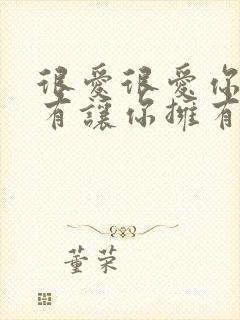 很愛很愛你
有讓你擁有
董荣